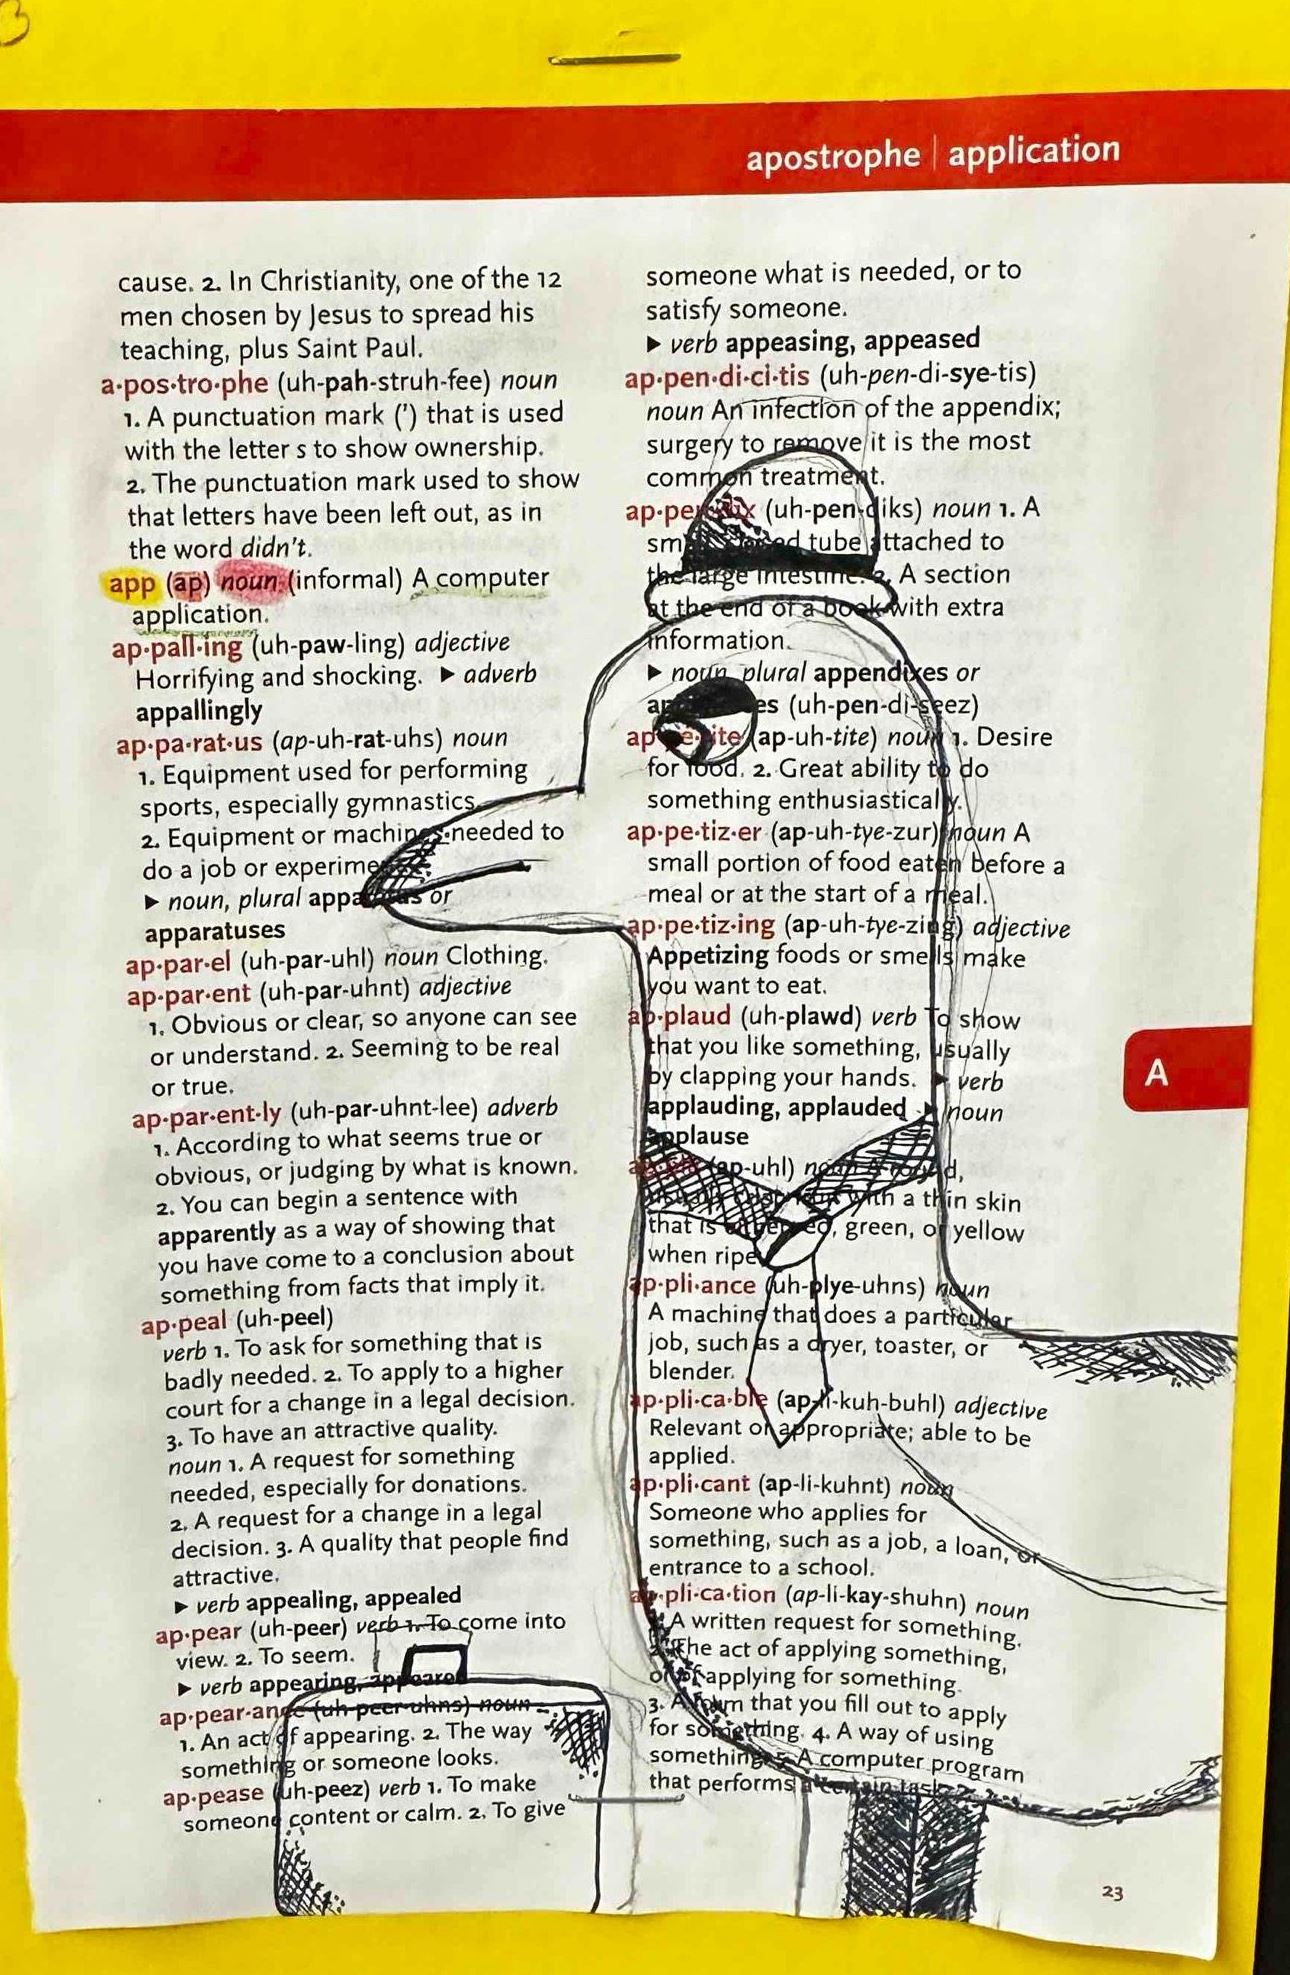 3
apostrophe | application
cause. 2. In Christianity, one of the 12
men chosen by Jesus to spread his
teaching, plus Saint Paul.
a·pos·tro·phe (uh-pah-struh-fee) noun
1. A punctuation mark (') that is used
with the letter s to show ownership.
2. The punctuation mark used to show
that letters have been left out, as in
the word didn't.
app (ap) noun (informal) A computer
application.
ap·pall·ing (uh-paw-ling) adjective
Horrifying and shocking. ▶ adverb
appallingly
ap·pa·rat·us (ap-uh-rat-uhs) noun
1. Equipment used for performing
sports, especially gymnastics.
2. Equipment or machines needed to
do a job or experiment.
▶ noun, plural apparatus or
apparatuses
ap·par·el (uh-par-uhl) noun Clothing.
ap·par·ent (uh-par-uhnt) adjective
1. Obvious or clear, so anyone can see
or understand. 2. Seeming to be real
or true.
ap·par·ent·ly (uh-par-uhnt-lee) adverb
1. According to what seems true or
obvious, or judging by what is known.
2. You can begin a sentence with
apparently as a way of showing that
you have come to a conclusion about
something from facts that imply it.
ap·peal (uh-peel)
verb 1. To ask for something that is
badly needed. 2. To apply to a higher
court for a change in a legal decision.
3. To have an attractive quality.
noun 1. A request for something
needed, especially for donations.
2. A request for a change in a legal
decision. 3. A quality that people find
attractive.
▶ verb appealing, appealed
ap·pear (uh-peer) verb 1. To come into
view. 2. To seem.
▶ verb appearing, appeared
ap·pear·ance (uh-peer-uhns) noun
1. An act of appearing. 2. The way
something or someone looks.
ap·pease (uh-peez) verb 1. To make
someone content or calm. 2. To give
someone what is needed, or to
satisfy someone.
▶ verb appeasing, appeased
ap·pen·di·ci·tis (uh-pen-di-sye-tis)
noun An infection of the appendix;
surgery to remove it is the most
common treatment.
ap·pendix (uh-pen-diks) noun 1. A
small tube attached to
the large intestine. 2. A section
at the end of a book with extra
information.
▶ noun, plural appendixes or
appendices (uh-pen-di-seez)
ap·pe·tite (ap-uh-tite) noun 1. Desire
for food. 2. Great ability to do
something enthusiastically.
ap·pe·tiz·er (ap-uh-tye-zur) noun A
small portion of food eaten before a
meal or at the start of a meal.
ap·pe·tiz·ing (ap-uh-tye-zing) adjective
Appetizing foods or smells make
you want to eat.
ap·plaud (uh-plawd) verb To show
that you like something, usually
by clapping your hands. ▶ verb
applauding, applauded ▶ noun
applause
(ap-uhl) noun A round,
with a thin skin
that is red, green, or yellow
when ripe
ap·pli·ance (uh-plye-uhns) noun
A machine that does a particular
job, such as a dryer, toaster, or
blender.
ap·pli·ca·ble (ap-li-kuh-buhl) adjective
Relevant or appropriate; able to be
applied.
ap·pli·cant (ap-li-kuhnt) noun
Someone who applies for
something, such as a job, a loan, or
entrance to a school.
ap·pli·ca·tion (ap-li-kay-shuhn) noun
1. A written request for something.
2. The act of applying something,
or of applying for something.
3. A form that you fill out to apply
for something. 4. A way of using
something. 5. A computer program
that performs a certain task.
A
23